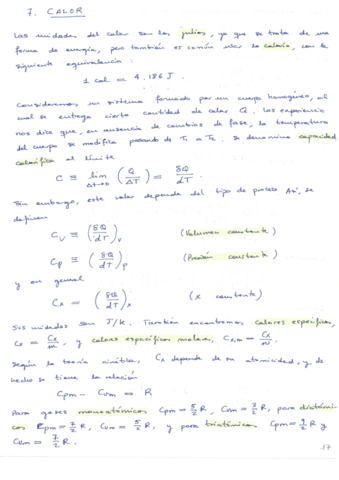 7. CALOR
Las unidades del calor son los julios, ya que se trata de una
forma de energía, pero también es común usar la caloría, con la
siguiente equivalencia:
1 cal = 4.186 J.
Consideremos un sistema formado por un cuerpo homogéneo, al
cual se entrega cierta cantidad de calor Q. Las experiencias
nos dice que, en ausencia de cambios de fase, la temperatura
del cuerpo se modifica pasando de T₁ a T₂. Se denomina capacidad
calorífica al límite
C ≡ lim Δt→0 (Q/ΔT) = δQ/dT
Sin embargo, este valor depende del tipo de proceso. Así, se
definen
Cv ≡ (δQ/dT)v (Volumen constante)
Cp ≡ (δQ/dT)p (Presión constante)
y en general
Cx = (δQ/dT)x (x constante)
Sus unidades son J/K. También encontramos calores específicos,
cx = Cx/m, y calores específicos molares, Cx,m = Cx/n.
Según la teoría cinética, Cx depende de su atomicidad, y de
hecho se tiene la relación
Cpm - Cvm = R
Para gases monoatómicos Cpm = 5/2 R, Cvm = 3/2 R, para diatómi-
cos Cpm = 7/2 R, Cvm = 5/2 R, y para triatómicos Cpm = 9/2 R y
Cvm = 7/2 R.
17